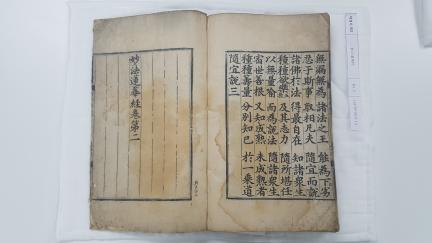 無漏無為 諸法之王 能為下劣
忍于斯事 取相凡夫 隨宜而說
諸佛於法 得最自在 知諸衆生
種種欲樂 及其志力 隨所堪任
以無量喻 而為說法 隨諸衆生
宿世善根 又知成熟 未成熟者
種種籌量 分別知已 於一乘道
隨宜說三
妙法蓮華經卷第二